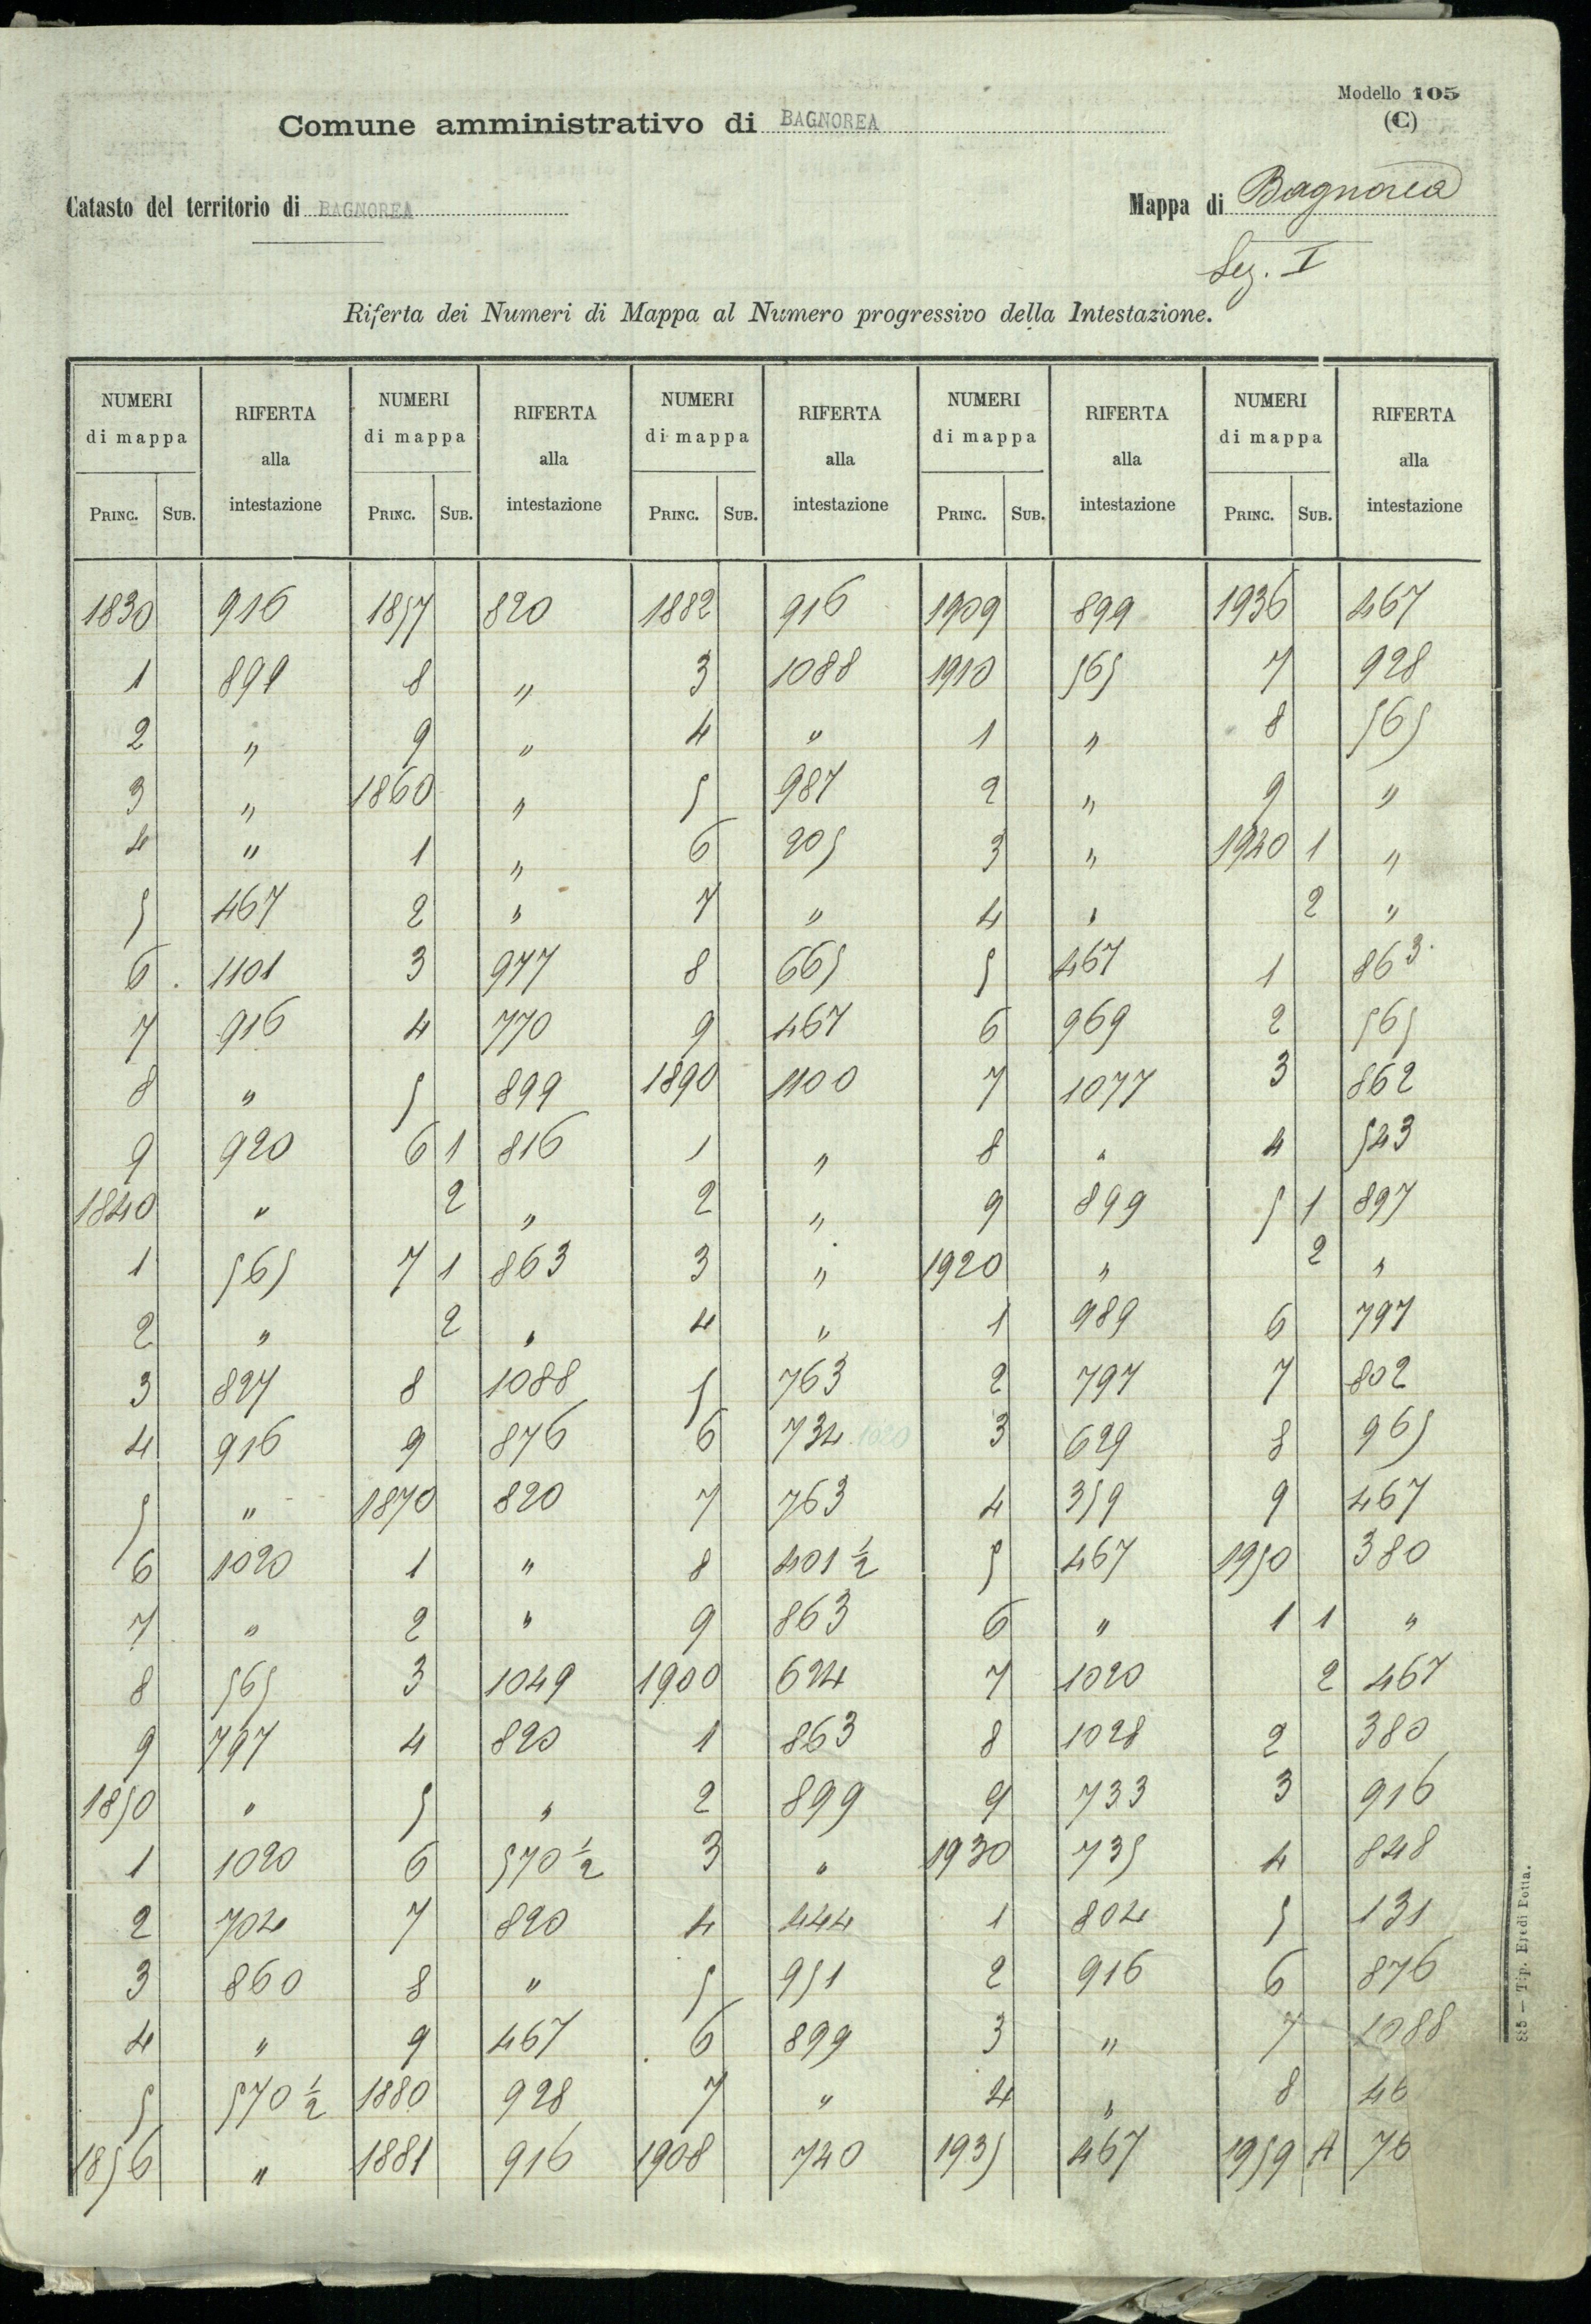 Modello 105
(C)
Comune amministrativo di BAGNOREA
Catasto del territorio di BAGNOREA
Mappa di Bagnorea
Sez. I
Riferta dei Numeri di Mappa al Numero progressivo della Intestazione.
NUMERI di mappa RIFERTA alla intestazione NUMERI di mappa RIFERTA alla intestazione NUMERI di mappa RIFERTA alla intestazione NUMERI di mappa RIFERTA alla intestazione NUMERI di mappa RIFERTA alla intestazione
PRINC. SUB. PRINC. SUB. PRINC. SUB. PRINC. SUB. PRINC. SUB.
1830 916 1857 820 1882 916 1909 899 1936 467
1 899 8 " 3 1088 1910 565 7 928
2 " 9 " 4 " 1 " 8 565
3 " 1860 " 5 987 2 " 9 "
4 " 1 " 6 205 3 " 1940 1 "
5 467 2 " 7 " 4 " 2 "
6 1101 3 977 8 665 5 467 1 863
7 916 4 770 9 467 6 969 2 565
8 " 5 899 1890 1100 7 1077 3 862
9 920 6 1 816 1 " 8 " 4 543
1840 " 2 " 2 " 9 899 5 1 897
1 565 7 1 863 3 " 1920 " 2 "
2 " 2 " 4 " 1 989 6 797
3 827 8 1088 5 763 2 797 7 802
4 916 9 876 6 734 1020 3 629 8 965
5 " 1870 820 7 763 4 359 9 467
6 1020 1 " 8 401 1/2 5 467 1950 380
7 " 2 " 9 863 6 " 1 1 "
8 565 3 1049 1900 624 7 1020 2 467
9 797 4 820 1 863 8 1028 2 380
1850 " 5 " 2 899 9 733 3 916
1 1020 6 570 1/2 3 " 1930 735 4 848
2 704 7 820 4 444 1 804 5 131
3 860 8 " 5 951 2 916 6 876
4 " 9 467 6 899 3 " 7 1088
5 570 1/2 1880 928 7 " 4 " 8 46
1856 " 1881 916 1908 740 1935 467 1959 A 76
835 — Tip. Eredi Botta.